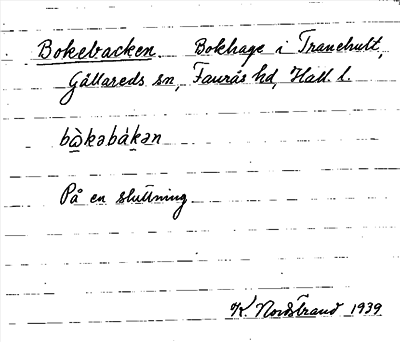 Bokebacken. Bokhage i Tranehult,
Gällareds sn, Faurås hd, Hall. l.
bὼkəbákən
På en sluttning
K. Nordstrand 1939